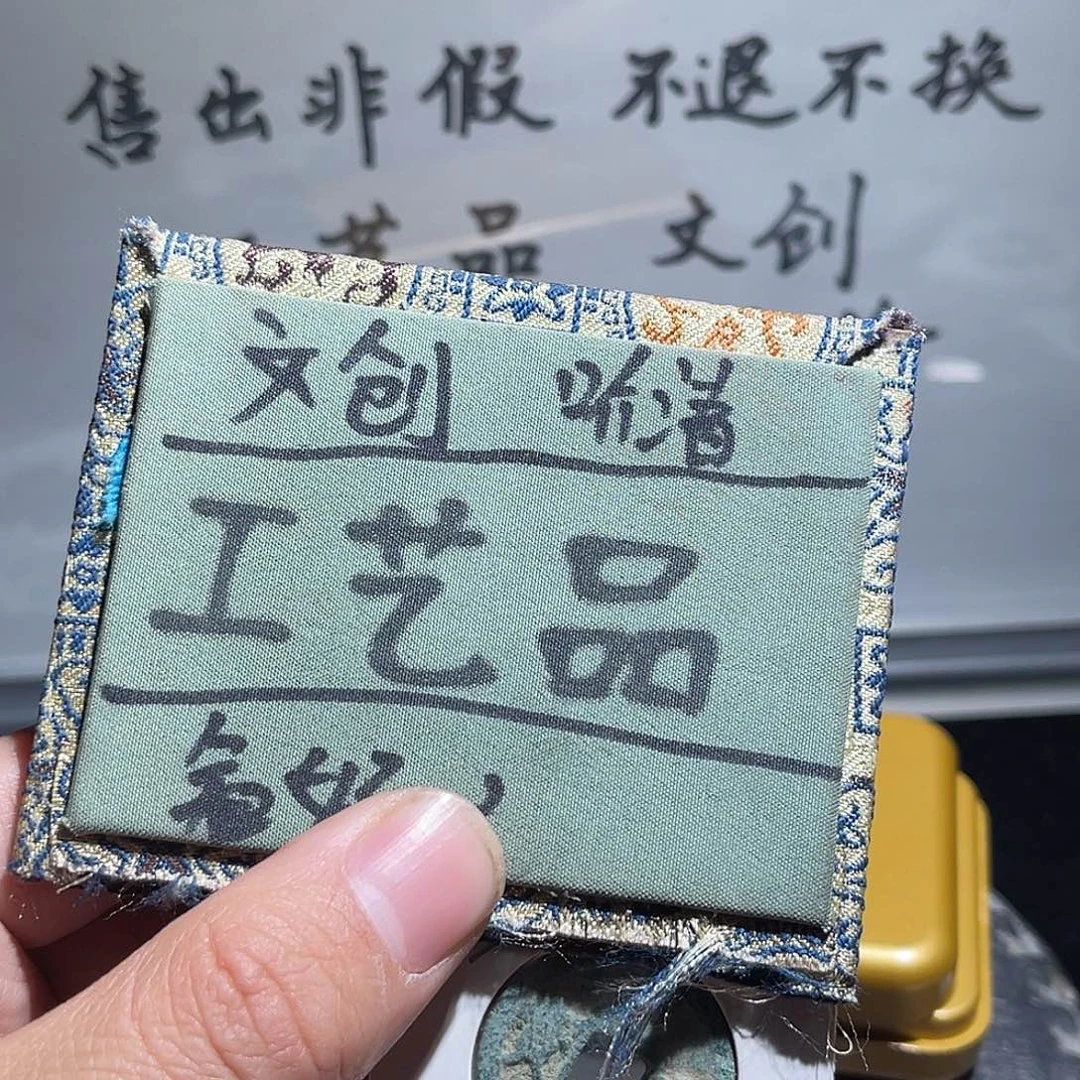 售出非假 不退不换
艺品 文创
文创 听清
工艺品